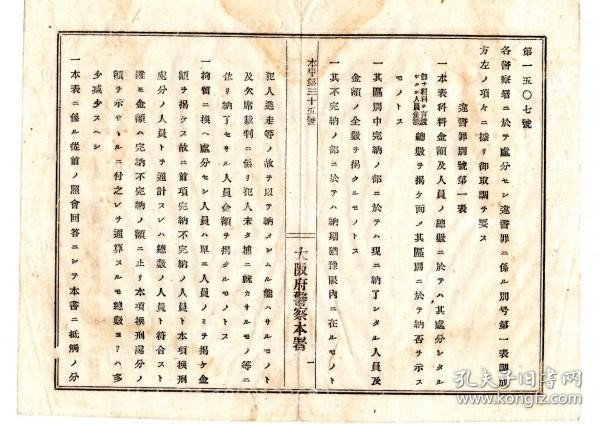 第一五〇七號
各警察署ニ於テ處分セシ違警罪ニ係ル別号第一表調成
方左ノ項々ニ據リ御取調ヲ要ス
違警罪別號第一表
一本表科料金額及人員ノ總數ニ於テハ其處分シタル
總數ヲ揭ケ而メ其區別ニ於テ納否ヲ示ス
モノトス
一其區別中完納ノ部ニ於テハ現ニ納了シタル人員及
金額ノ全數ヲ揭クルモノトス
一其不完納ノ部ニ於テハ納期猶豫限內ニ在ルモノト
本甲第三十五號
大阪府警察本署
一
犯人逃走等ノ故ヲ以テ納メシムル能ハサルモノト
及欠席裁判ニ係リ犯人未タ捕ニ就カサルモノ等ニ
依リ納了セサル人員金額ヲ揭クルモノトス
一拘留ニ換ヘ處分セシ人員ハ單ニ人員ノミヲ揭ケ金
額ヲ揭ケス故ニ首項完納不完納ノ人員ト本項換刑
處分ノ人員トヲ通計スレハ總數ノ人員ト符合スト
雖モ金額ハ完納不完納ノ額ニ止リ本項換刑處分ノ
額ヲ示サヽルニ付之レヲ通算スルモ總數ヨリハ多
少減少スヘシ
一本表ニ係ル從前ノ照會回答ニシテ本書ニ抵觸ノ分
孔夫子旧书网
www.kongfz.com